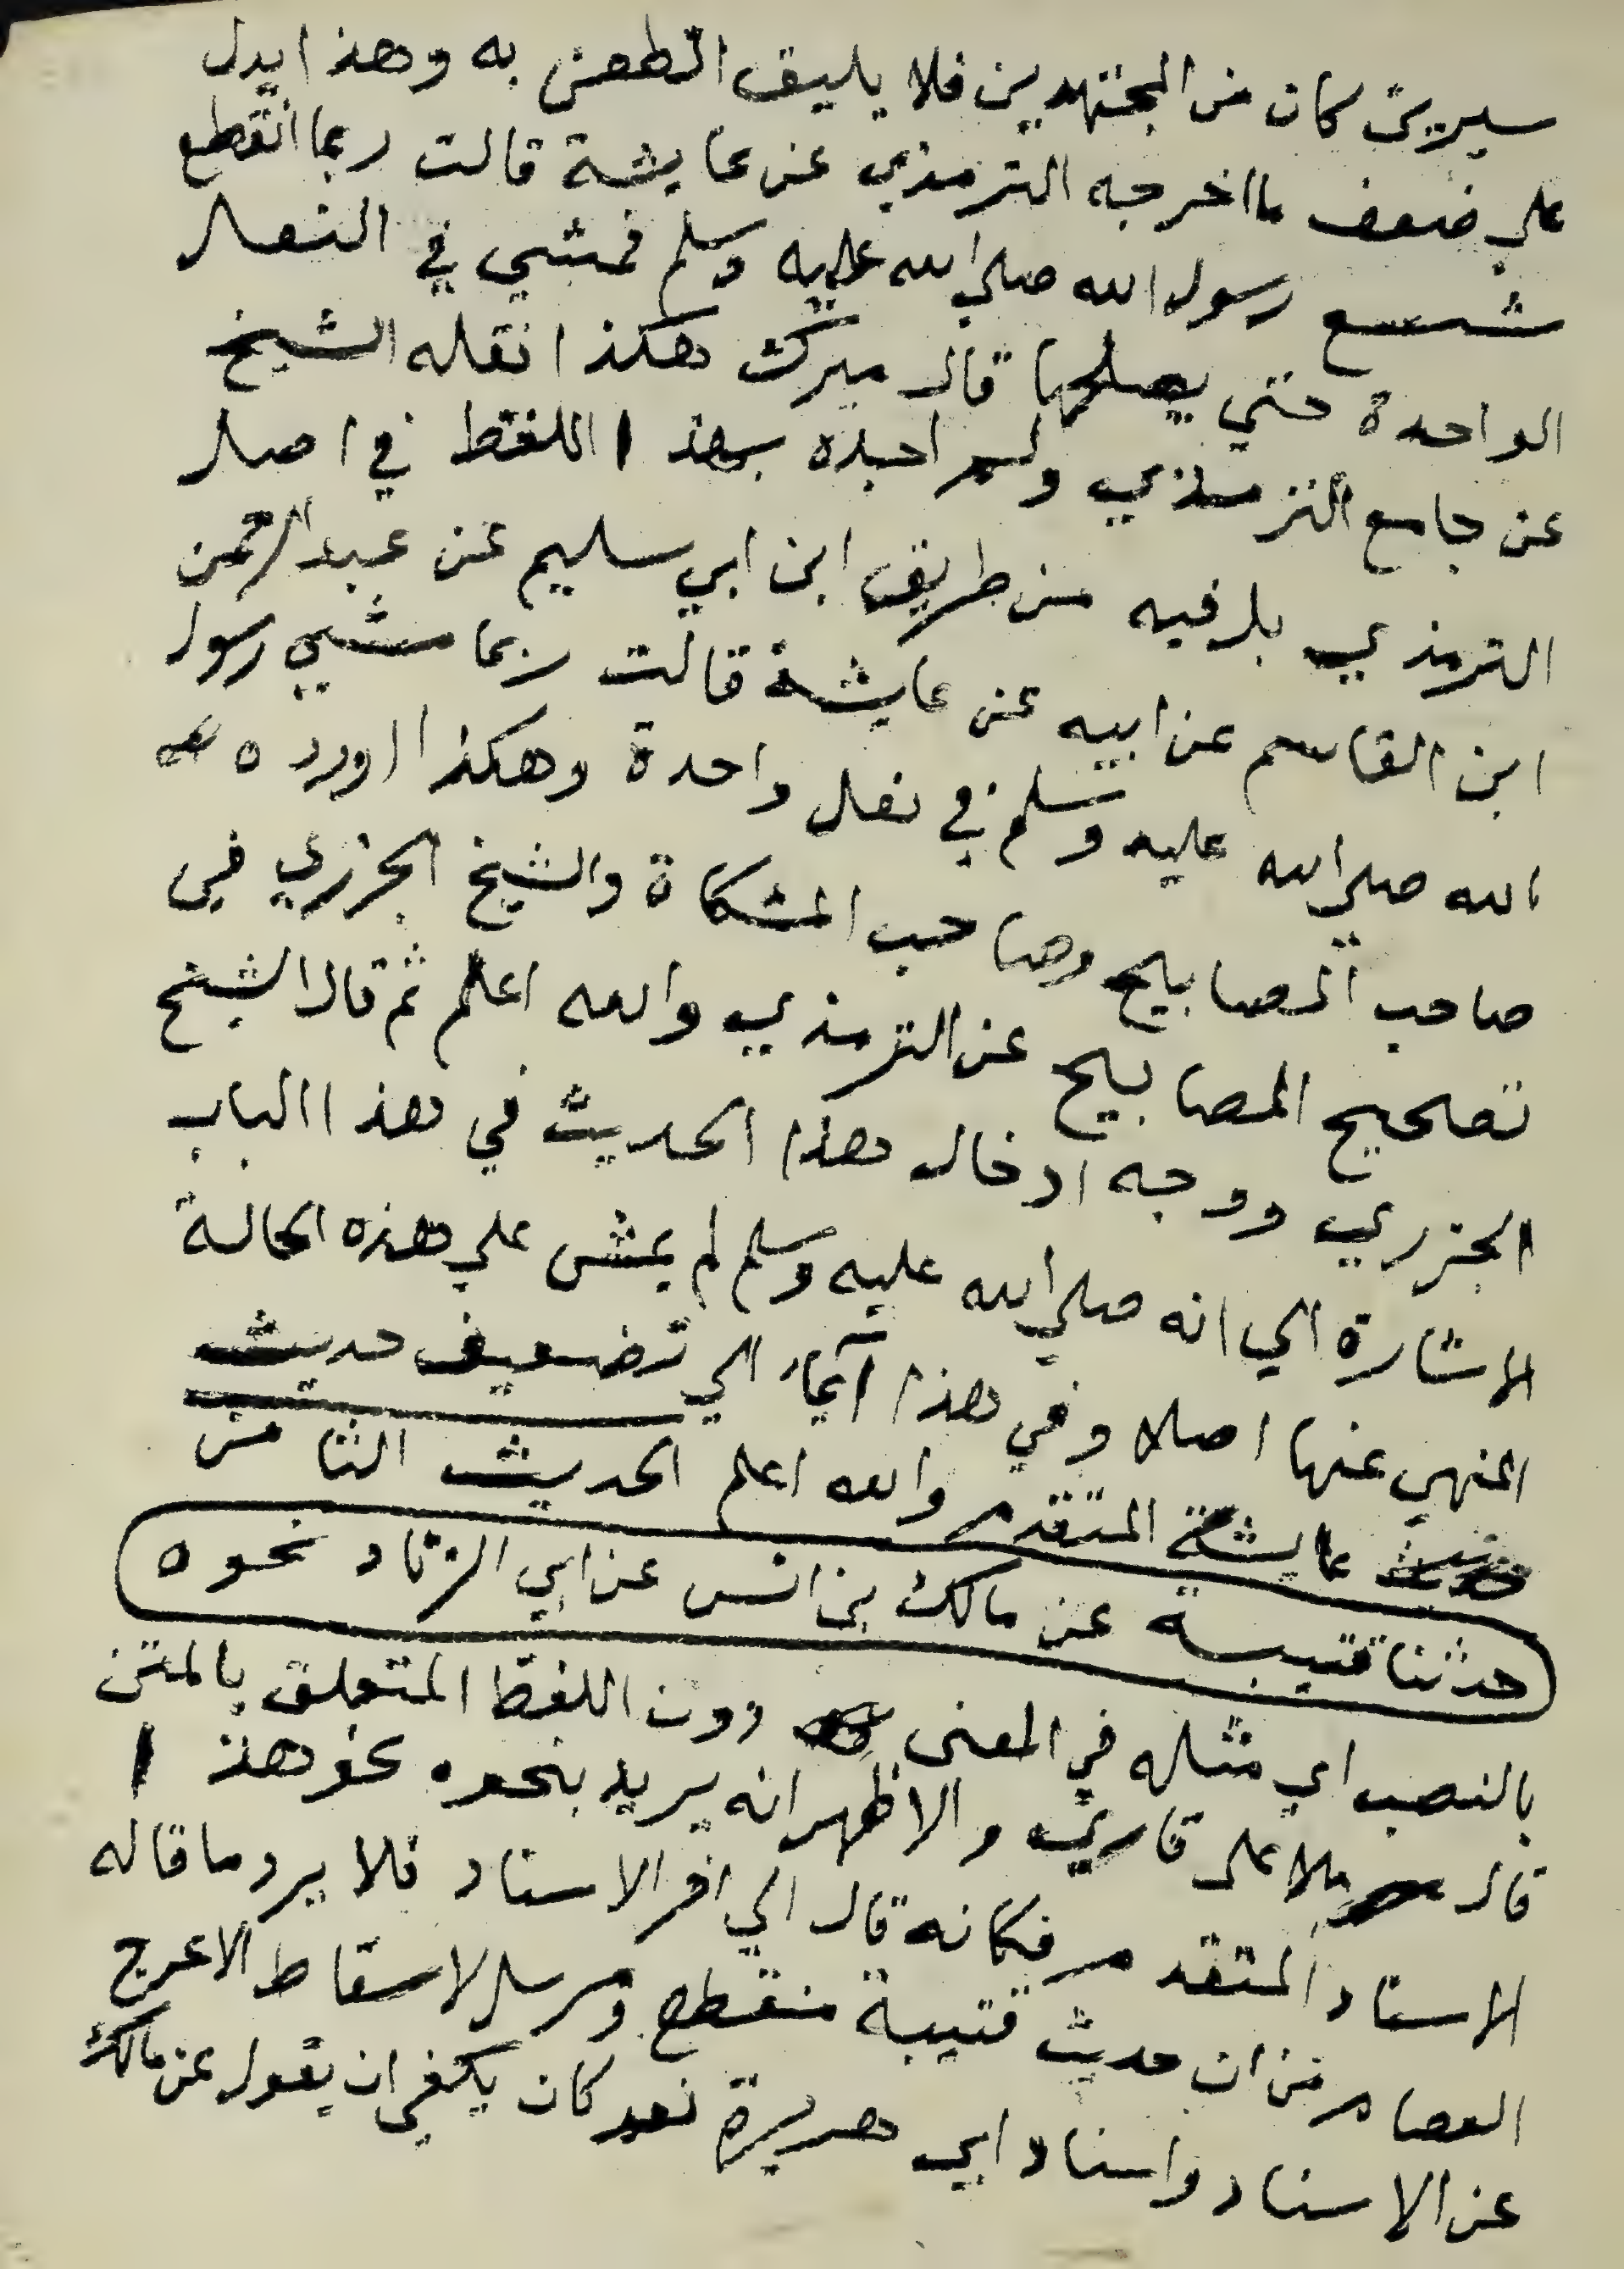 سيرين كان من المجتهدين فلا يليق الطعن به وهذا يدل
على ضعف ما اخرجه الترمذي عن عايشة قالت ربما انقطع
شسع رسول الله صلى الله عليه وسلم فمشي في النعال
الواحدة حتي يصلحها قال ميرك هكذا نقله الشيخ
عن جامع الترمذي ولم اجده بهذا اللفظ في اصل
الترمذي بل فيه من طريق ابن ابي سليم عن عبد الرحمن
ابن القاسم عن ابيه عن عايشة قالت ربما مشي رسول
الله صلى الله عليه وسلم في نعل واحدة وهكذا اورده
صاحب المصابيح وصاحب المشكاة والشيخ الجزري في
تصحيح المصابيح عن الترمذي والله اعلم ثم قال الشيخ
الجزري ووجه ادخال هذا الحديث في هذا الباب
الاشارة الي انه صلى الله عليه وسلم لم يمش على هذه الحالة
المنهي عنها اصلا وفي هذا ايماء الي تضعيف حديث
عايشة المتقدم والله اعلم الحديث الثامن
حدثنا قتيبة عن مالك بن انس عن ابي الزناد نحوه
بالنصب اي مثله في المعنى دون اللفظ المتعلق بالمتن
قال ملا على قاري والاظهر انه يريد بنحوه نحو هذا
الاسناد المتقدم فكانه قال الي اخر الاسناد فلا يرد ما قاله
العصام من ان حديث قتيبة منقطع ومرسل لاسقاط الاعرج
عن الاسناد واسناد ابي هريرة نعم كان يكفي ان يقول عن مالك